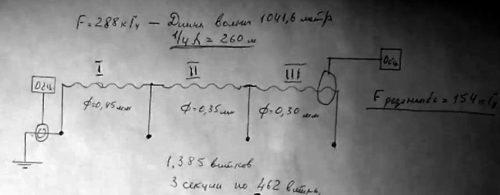 F = 288 кГц — Длина волны 1041,6 метр
1/4 λ = 260 м
I II III
Осц. Осц
Ф=0,45мм Ф=0,35мм Ф=0,30мм
F резонанса = 154 кГц
1,385 витков
3 секции по 462 витка